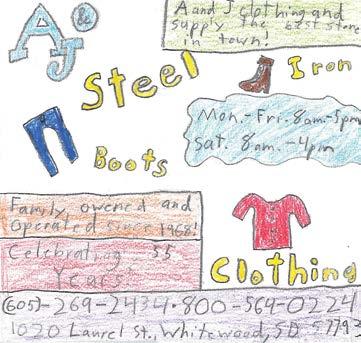 A & J
A and J clothing and
supply the best store
in town!
Steel
Iron
Mon.-Fri. 8am.-5pm
Sat. 8am.-4pm
Boots
Family owened and
operated since 1968!
Celebrating 55
Years!
Clothing
(605)-269-2434·800-564-0224
1020 Laurel St., Whitewood, SD 57793